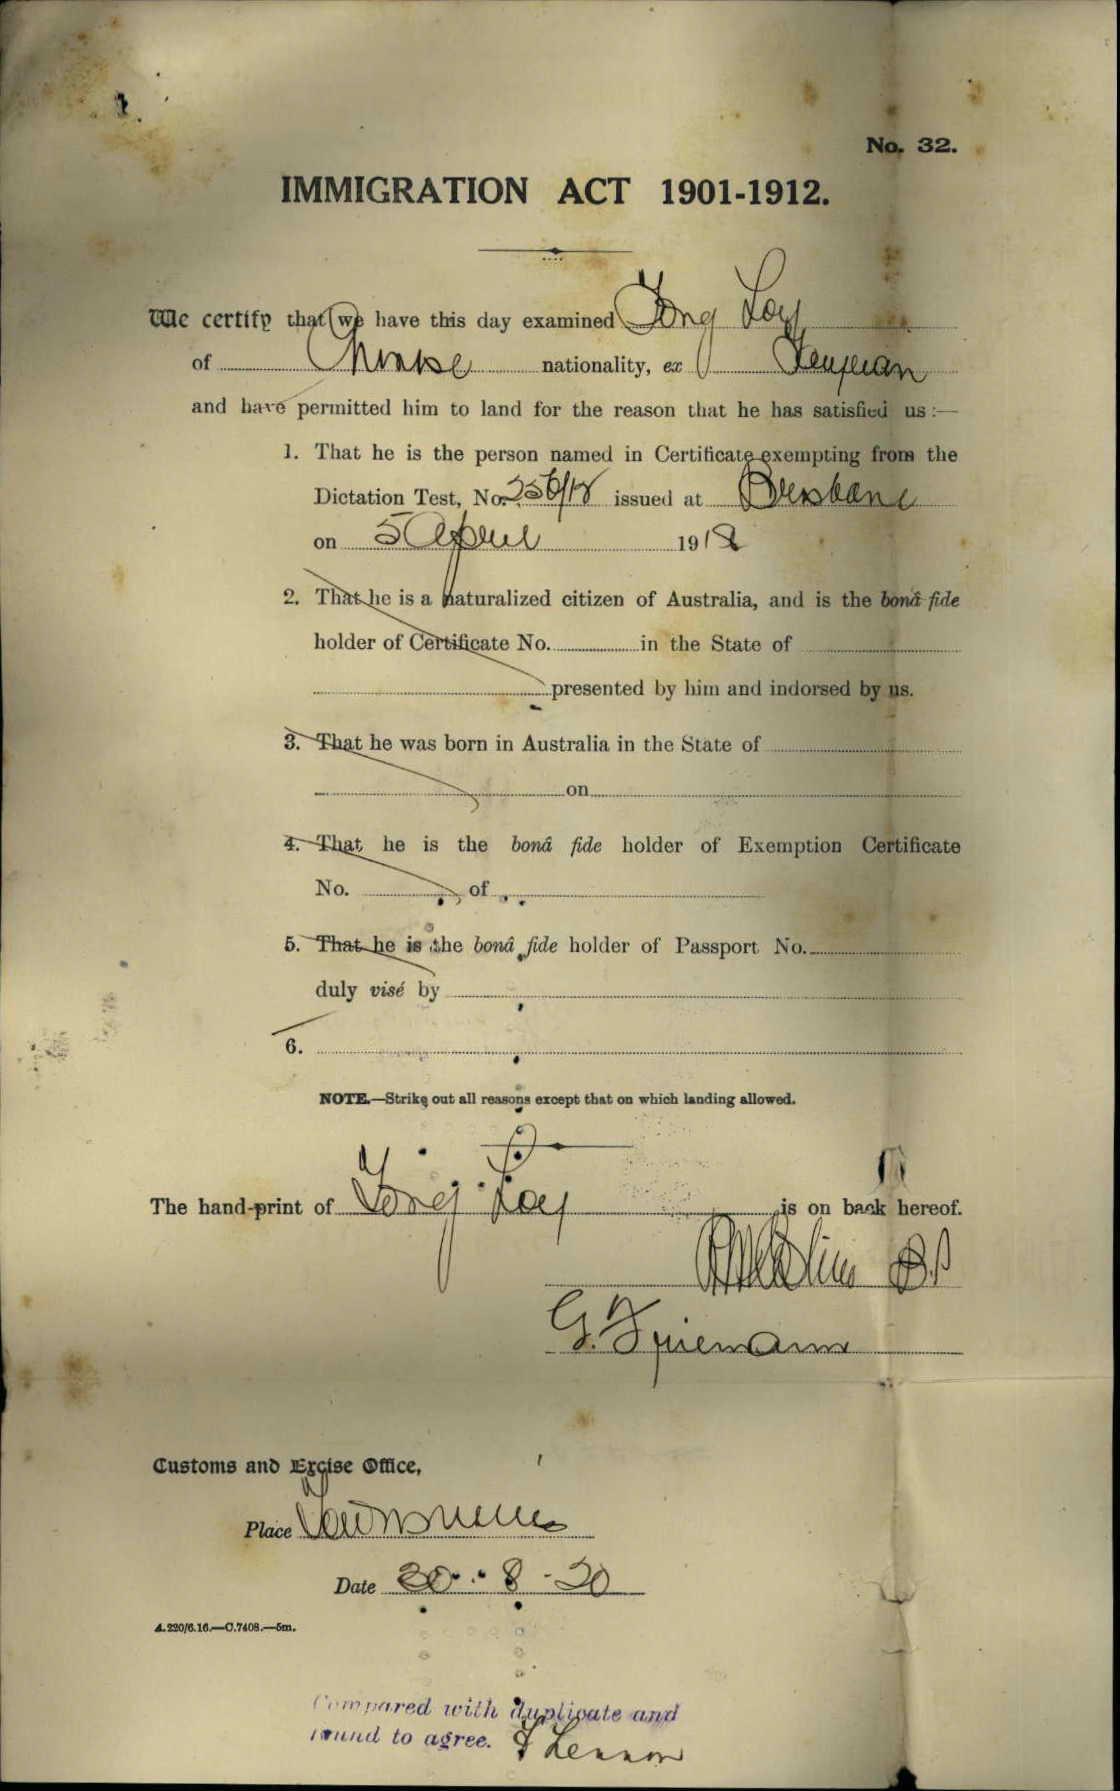 No. 32.
IMMIGRATION ACT 1901-1912.
We certify that we have this day examined Tong Loy
of Chinese nationality, ex
and have permitted him to land for the reason that he has satisfied us :—
1. That he is the person named in Certificate exempting from the
Dictation Test, No. 256/18 issued at Brisbane
on 5 April 1918
2. That he is a naturalized citizen of Australia, and is the bonâ fide
holder of Certificate No. in the State of
presented by him and indorsed by us.
3. That he was born in Australia in the State of
on
4. That he is the bonâ fide holder of Exemption Certificate
No. of
5. That he is the bonâ fide holder of Passport No.
duly visé by
6.
NOTE.—Strike out all reasons except that on which landing allowed.
The hand-print of Tong Loy is on back hereof.
G.
Customs and Excise Office,
Place Townsville
Date 20 - 8 - 20
A.220/6.16.—C.7408.—5m.
Compared with duplicate and
found to agree. Lennon